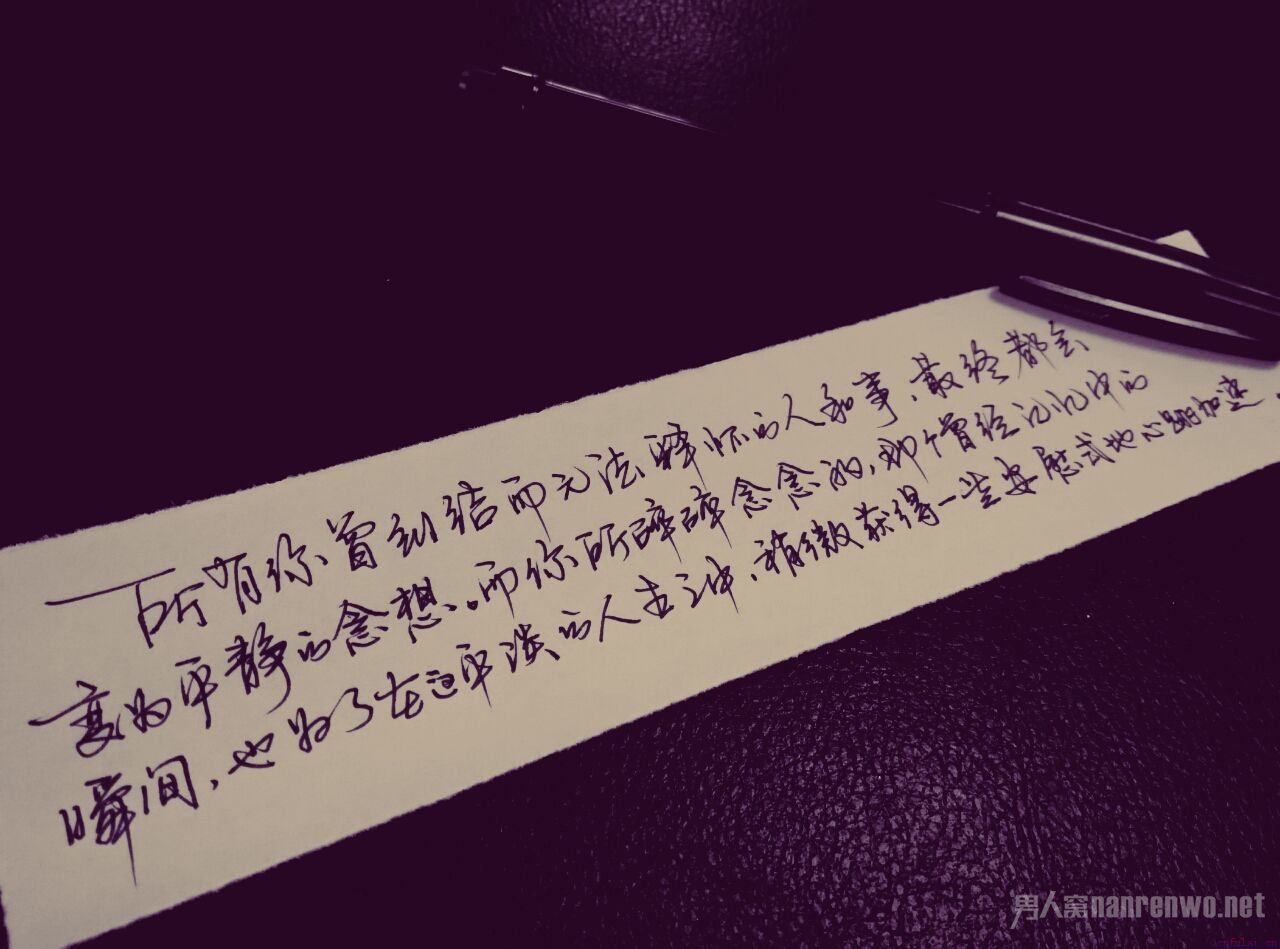 所有你曾纠结而无法释怀的人和事、最终都会
变为平静的念想。而你所碎碎念念的,那个曾经记忆中的
瞬间,也为了在这平淡的人生之中、稍微获得一些安慰式地心跳加速。
男人窝nanrenwo.net